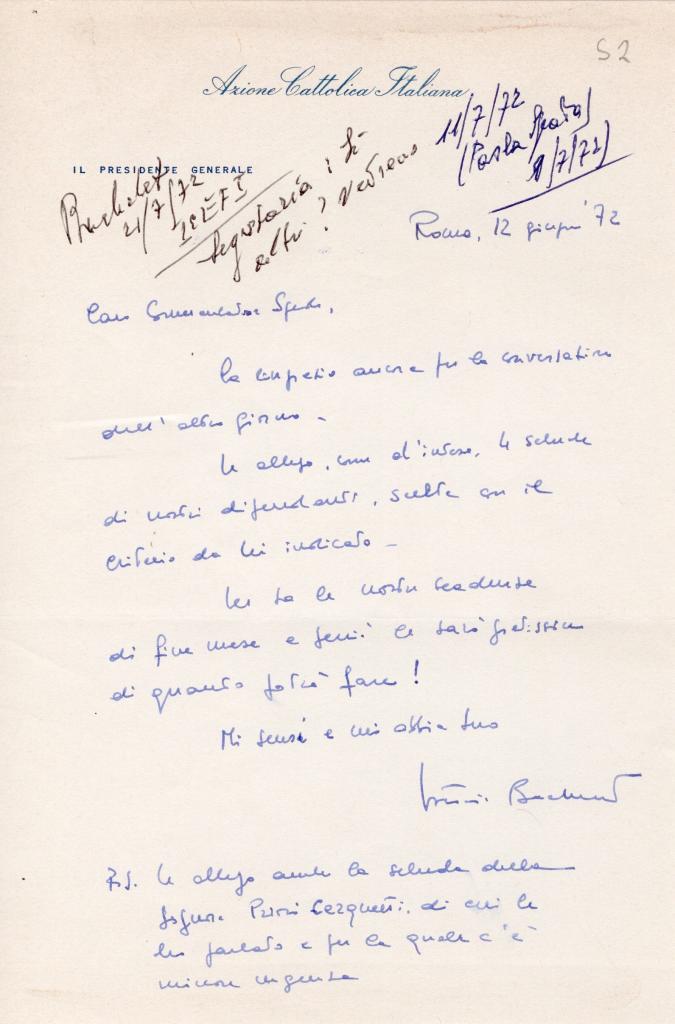 52
Azione Cattolica Italiana
IL PRESIDENTE GENERALE
11/7/72
(Parla
1/7/72)
Bachelet
21/7/72
Segretaria : Sì
altri ? Vedremo
Roma, 12 giugno '72
Caro Commendatore
La ringrazio ancora per la conversazione
dell'altro giorno –
Le allego, come d'intesa, 4 schede
di nostri dipendenti, scelte con il
criterio da Lei indicato –
Lei sa le nostre scadenze
di fine mese e perciò le sarò gratissimo
di quanto potrà fare !
Mi scusi e mi abbia Suo
Vittorio Bachelet
P.S. Le allego anche la scheda della
Signora di cui le
ho parlato e per la quale c'è
minore urgenza